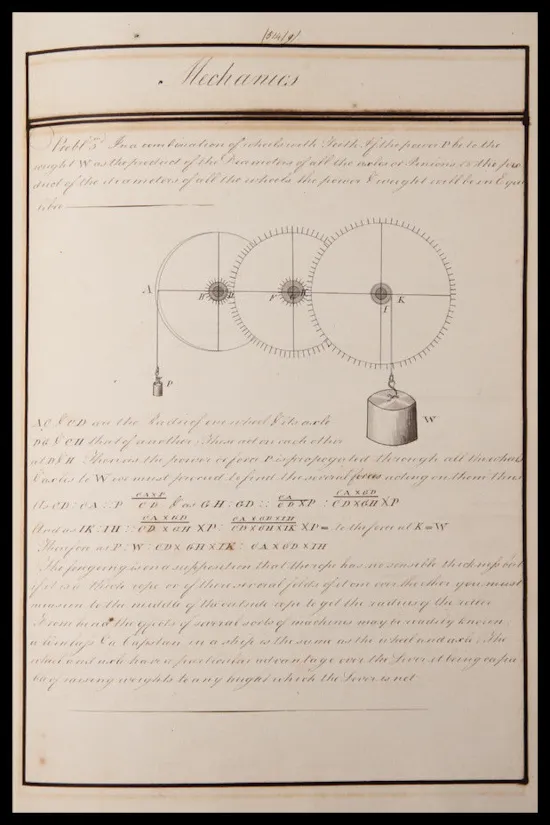 Mechanics
Probl 5 In a combination of wheels with Teeth If the power P be to the
weight W as the product of the Diameters of all the axles or Pinions to the pro
duct of the diameters of all the wheels the power & weight will be in Equi
libr
A B D F G H I K
P
W
AC & CD are the Radii of one wheel & its axle
DG & GH that of another These act on each other
at D & H Then as the power or force P is propogated through all the wheels
& axles to W we must proceed to find the several forces acting on them thus
As CD : CA :: P CA×P / CD & as GH : GD :: CA / CD ×P : CA×GD / CD×GH ×P
And as IK : IH :: CA×GD / CD×GH ×P : CA×GD×IH / CD×GH×IK ×P = to the force at K = W
Therefore as P : W : CD × GH × IK : CA × GD × IH
The forgoing is on a supposition that the rope has no sensible thickness but
if it is a thick rope or if there several folds of it one over the other you must
measure to the middle of the outside rope to get the radius of the roller
From hence the effects of several sorts of machines may be readily known
a Windlass Or Capstan in a ship is the same as the wheel and axle The
wheel and axle have a particular advantage over the Lever it being capa
ble of raising weights to any hight which the Lever is not